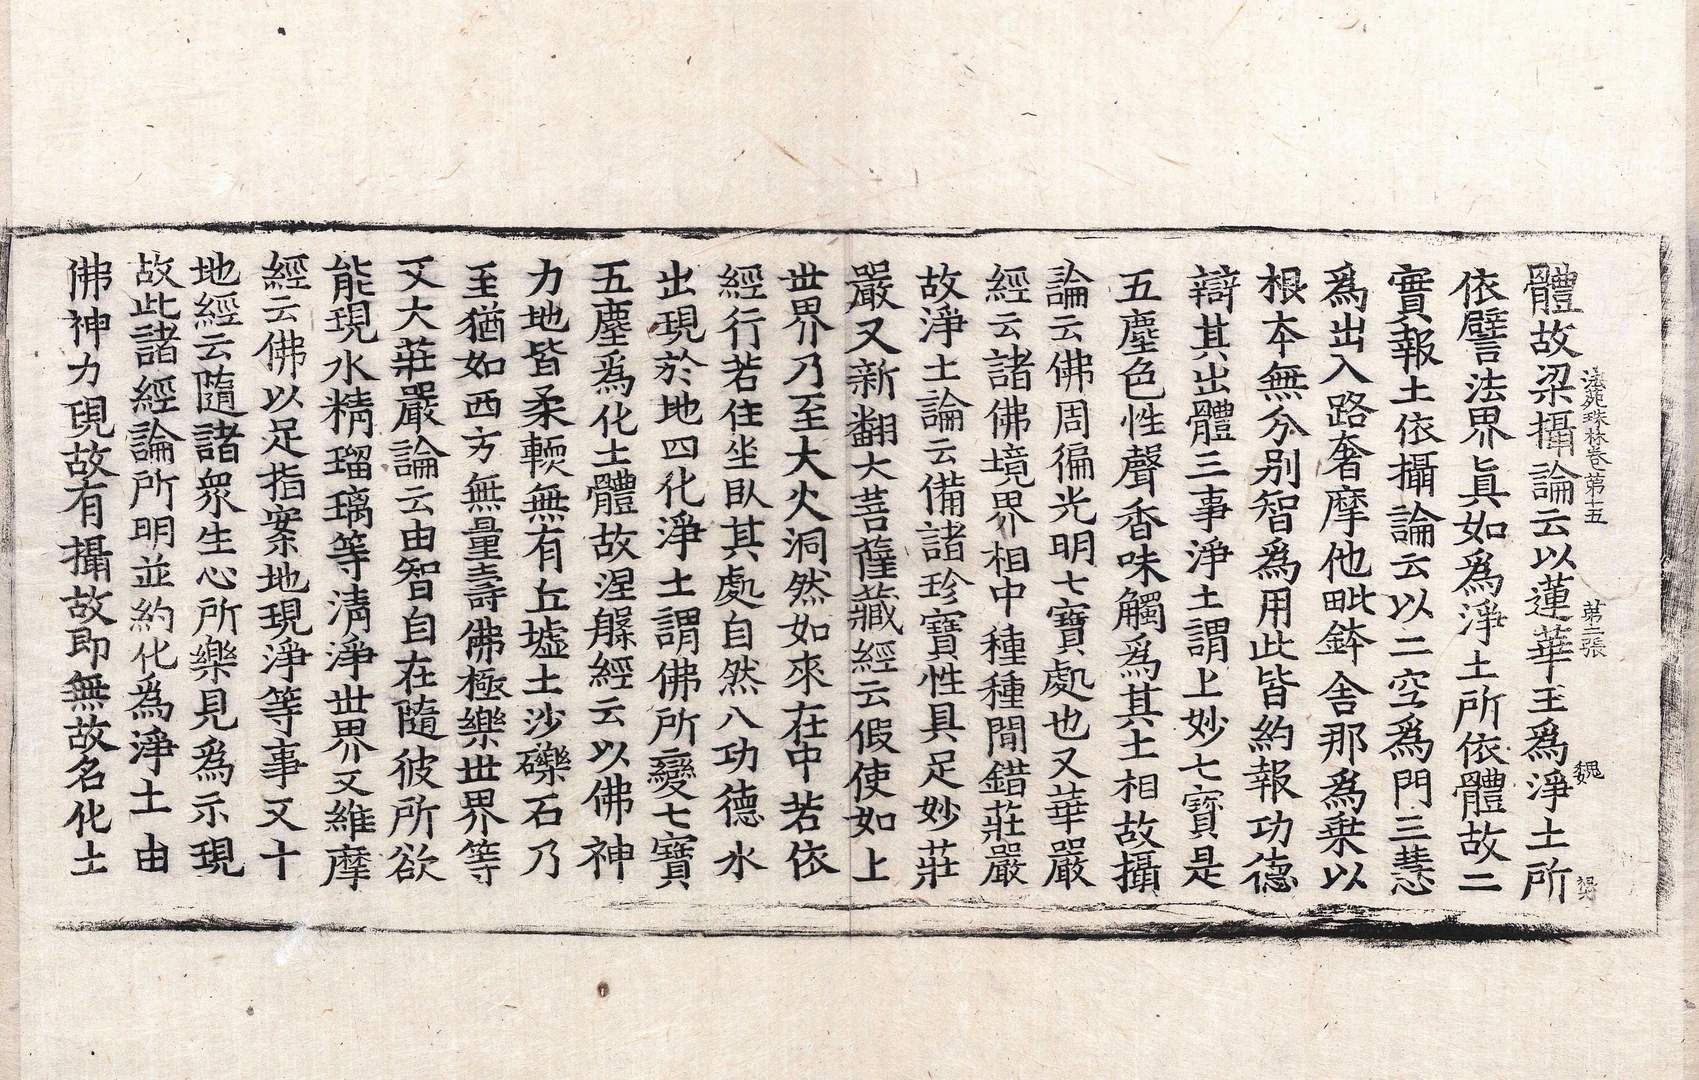 法苑珠林卷第十五 第二張 魏
體故梁攝論云以蓮華王爲淨土所
依譬法界眞如爲淨土所依體故二
實報土依攝論云以二空爲門三慧
爲出入路奢摩他毗鉢舍那爲乗以
根本無分别智爲用此皆約報功德
辯其出體三事淨土謂上妙七寳是
五塵色性聲香味觸爲其土相故攝
論云佛周徧光明七寳處也又華嚴
經云諸佛境界相中種種間錯莊嚴
故淨土論云備諸珍寳性具足妙莊
嚴又新翻大菩薩藏經云假使如上
世界乃至大火洞然如來在中若依
經行若住坐臥其處自然八功德水
出現於地四化淨土謂佛所變七寳
五塵爲化土體故涅槃經云以佛神
力地皆柔輭無有丘墟土沙礫石乃
至猶如西方無量壽佛極樂世界等
又大莊嚴論云由智自在隨彼所欲
能現水精瑠璃等清淨世界又維摩
經云佛以足指案地現淨等事又十
地經云隨諸衆生心所樂見爲示現
故此諸經論所明並約化爲淨土由
佛神力現故有攝故即無故名化土